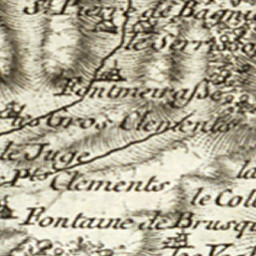 St Pierre de Bagni
le Serris
Fontmeirasse
les Gros Clements
le Juge
Pts Clements
la
le Coll
Fontaine de Brusq
les